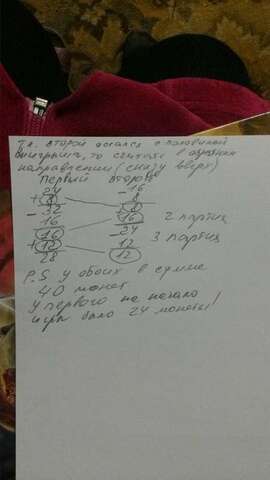 Т.к. второй остался с половиной
выигрыша, то считаем в обратном
направлении (снизу вверх)
Первый второй
24 -16
+8 8
-32 8
16 +16
16 -24
+12 12
28 12
2 партия
3 партия
P.S у обоих в сумме
40 монет
У первого на начало
игры было 24 монеты!